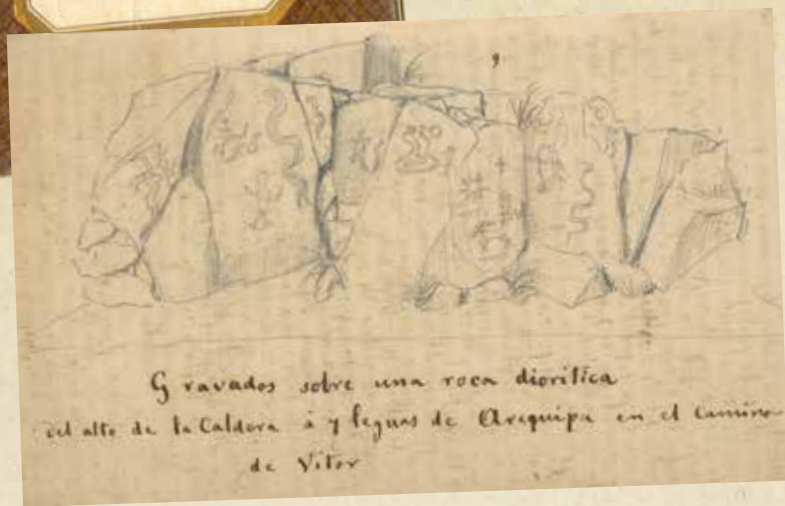 9
Gravados sobre una roca dioritica
del alto de la Caldera á 7 leguas de Arequipa en el Camino
de Vitor